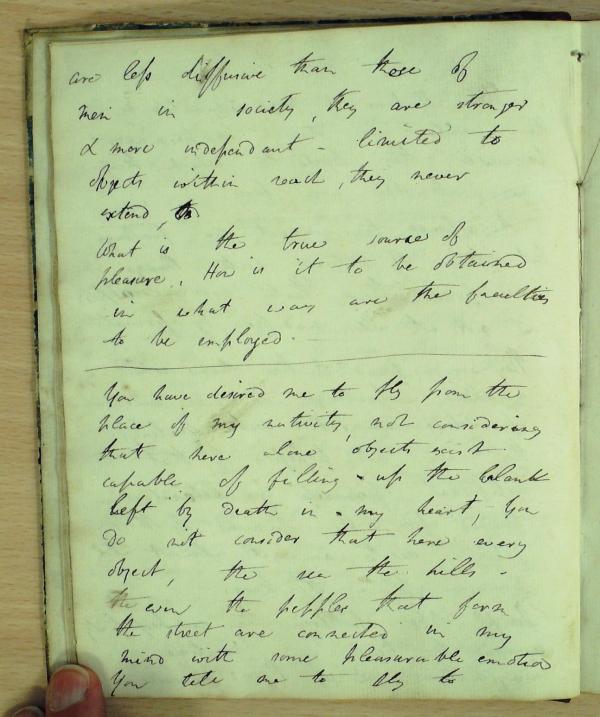 are less diffusive than those of
men in society, they are stronger
& more independant - limited to
objects within reach, they never
extend, to
What is the true source of
pleasure. How is it to be obtained
in what way are the faculties
to be employed.
You have desired me to fly from the
place of my nativity, not considering
that here alone objects exist
capable of filling up the blank
left by death in my heart, You
do not consider that here every
object, the sea the hills -
the even the pepples that form
the street are connected in my
mind with some pleasurable emotion
You tell me to fly to